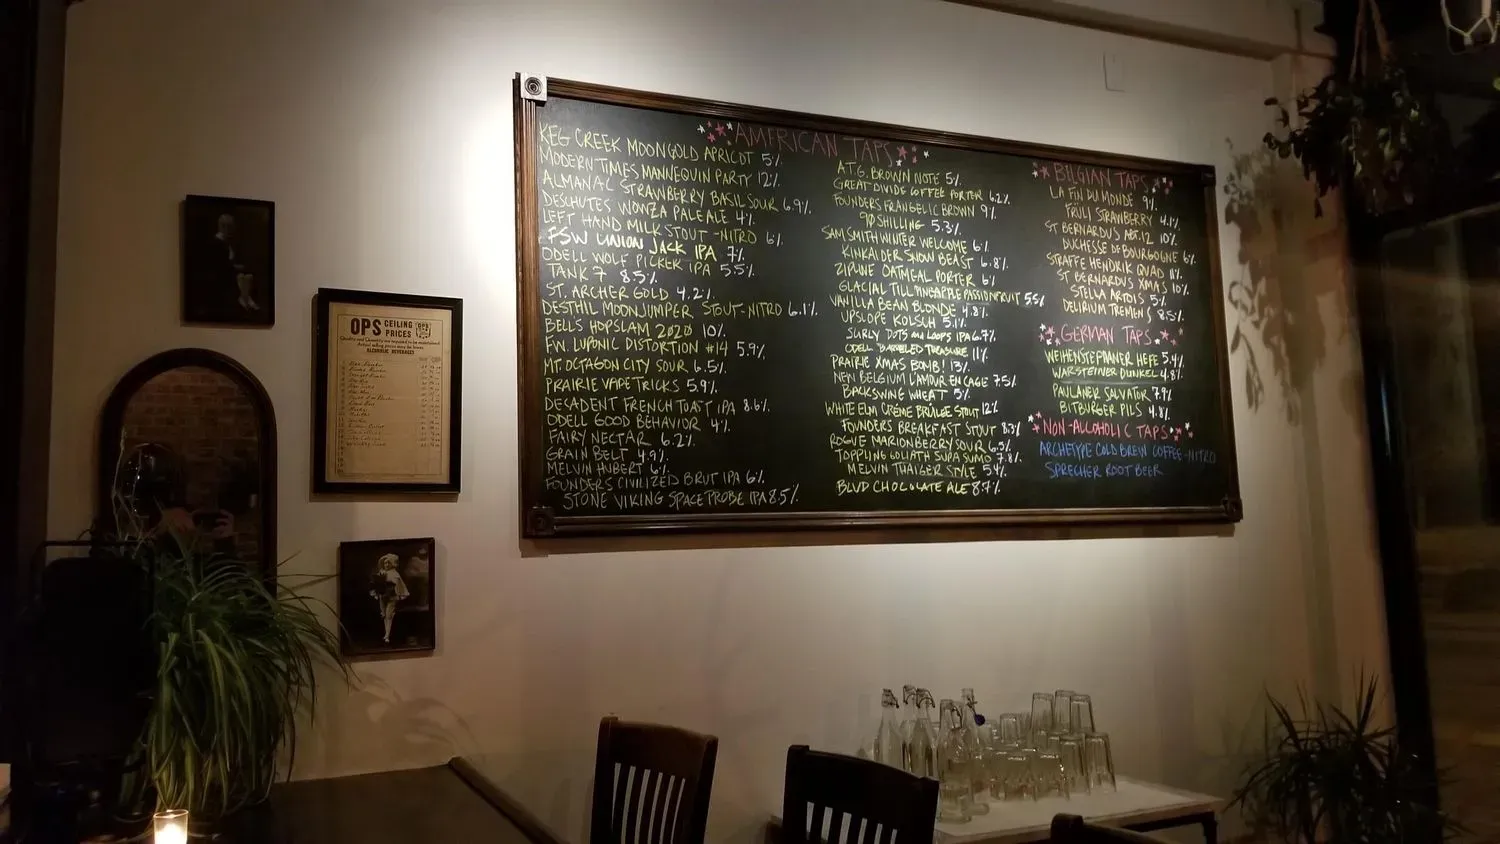 OPS CEILING PRICES
ALCOHOLIC BEVERAGES
AMERICAN TAPS
KEG CREEK MOONGOLD APRICOT 5%
MODERN TIMES MANNEQUIN PARTY 12%
ALMANAC STRAWBERRY BASIL SOUR 6.9%
DESCHUTES WOWZA PALE ALE 4%
LEFT HAND MILK STOUT-NITRO 6%
FSW UNION JACK IPA 7%
ODELL WOLF PICKER IPA 5.5%
TANK 7 8.5%
ST. ARCHER GOLD 4.2%
DESTHIL MOONJUMPER STOUT-NITRO 6.1%
BELLS HOPSLAM 2020 10%
F.N. LUPONIC DISTORTION #14 5.9%
MT. OCTAGON CITY SOUR 6.5%
PRAIRIE VAPE TRICKS 5.9%
DECADENT FRENCH TOAST IPA 8.6%
ODELL GOOD BEHAVIOR 4%
FAIRY NECTAR 6.2%
GRAIN BELT 4.9%
MELVIN HUBERT 6%
FOUNDERS CIVILIZED BRUT IPA 6%
STONE VIKING SPACE PROBE IPA 8.5%
A.T.G. BROWN NOTE 5%
GREAT DIVIDE COFFEE PORTER 6.2%
FOUNDERS FRANGELIC BROWN 9%
90 SHILLING 5.3%
SAM SMITH WINTER WELCOME 6%
KINKAIDER SNOW BEAST 6.8%
ZIPLINE OATMEAL PORTER 6%
GLACIAL TILL PINEAPPLE PASSIONFRUIT 5.5%
VANILLA BEAN BLONDE 4.8%
UPSLOPE KOLSCH 5.1%
SURLY DOTS AND LOOPS IPA 6.7%
ODELL BARRELED TREASURE 11%
PRAIRIE XMAS BOMB! 13%
NEW BELGIUM L'AMOUR EN CAGE 7.5%
BACKSWING WHEAT 5%
WHITE ELM CRÈME BRÛLÉE STOUT 12%
FOUNDERS BREAKFAST STOUT 8.3%
ROGUE MARIONBERRY SOUR 6.3%
TOPPLING GOLIATH SUPA SUMO 7.8%
MELVIN THAIGER STYLE 5.4%
BLVD CHOCOLATE ALE 8.7%
BELGIAN TAPS
LA FIN DU MONDE 9%
FRULI STRAWBERRY 4.1%
ST BERNARDUS ABT. 12 10%
DUCHESSE DE BOURGOGNE 6%
STRAFFE HENDRIK QUAD 11%
ST BERNARDUS XMAS 10%
STELLA ARTOIS 5%
DELIRIUM TREMENS 8.5%
GERMAN TAPS
WEIHENSTEPHANER HEFE 5.4%
WARSTEINER DUNKEL 4.8%
PAULANER SALVATOR 7.9%
BITBURGER PILS 4.8%
NON-ALCOHOLIC TAPS
ARCHETYPE COLD BREW COFFEE-NITRO
SPRECHER ROOT BEER